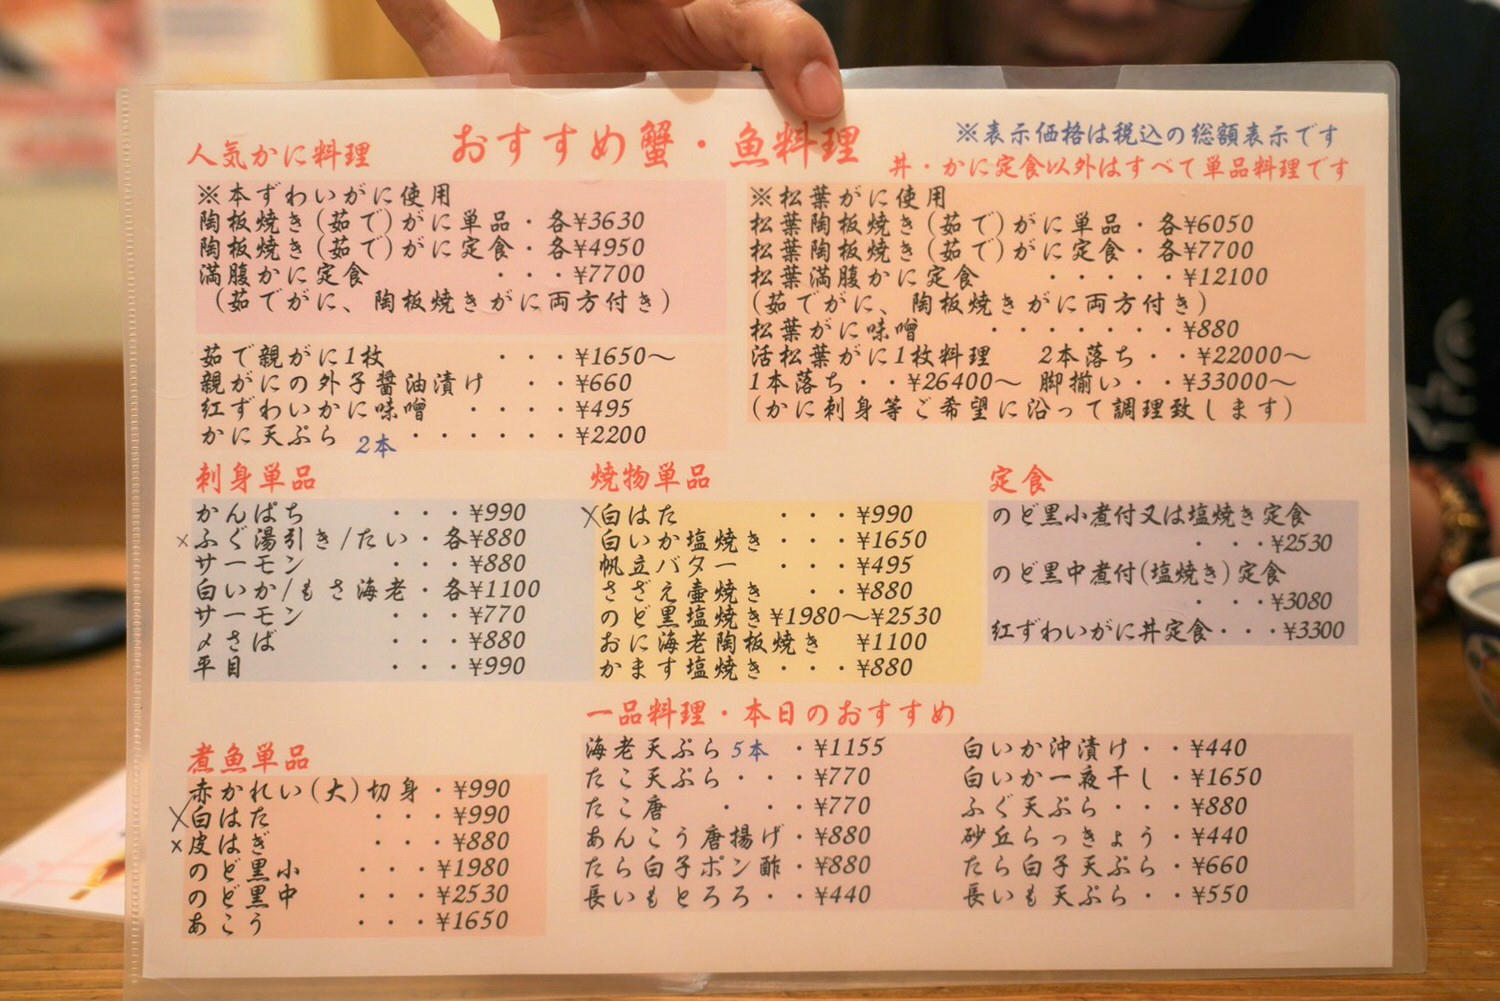 おすすめ蟹・魚料理
※表示価格は税込の総額表示です
丼・かに定食以外はすべて単品料理です
人気かに料理
※本ずわいがに使用
陶板焼き(茹で)がに単品・各¥3630
陶板焼き(茹で)がに定食・各¥4950
満腹かに定食 ・・・¥7700
(茹でがに、陶板焼きがに両方付き)
茹で親がに1枚 ・・・¥1650〜
親がにの外子醤油漬け ・・¥660
紅ずわいかに味噌 ・・・・¥495
かに天ぷら 2本 ・・・・・・¥2200
※松葉がに使用
松葉陶板焼き(茹で)がに単品・各¥6050
松葉陶板焼き(茹で)がに定食・各¥7700
松葉満腹かに定食 ・・・・・¥12100
(茹でがに、陶板焼きがに両方付き)
松葉がに味噌 ・・・・・・・¥880
活松葉がに1枚料理 2本落ち・・¥22000〜
1本落ち・・¥26400〜 脚揃い・・¥33000〜
(かに刺身等ご希望に沿って調理致します)
刺身単品
かんぱち ・・・¥990
×ふぐ湯引き/たい・各¥880
サーモン ・・・¥880
白いか/もさ海老・各¥1100
サーモン ・・・¥770
〆さば ・・・¥880
平目 ・・・¥990
焼物単品
×白はた ・・・¥990
白いか塩焼き・・・¥1650
帆立バター ・・・¥495
さざえ壷焼き ・・¥880
のど黒塩焼き¥1980〜¥2530
おに海老陶板焼き ¥1100
かます塩焼き・・・¥880
定食
のど黒小煮付又は塩焼き定食
・・・¥2530
のど黒中煮付(塩焼き)定食
・・・¥3080
紅ずわいがに丼定食・・・¥3300
煮魚単品
赤かれい(大)切身・¥990
×白はた ・・・¥990
×皮はぎ ・・・¥880
のど黒小 ・・・¥1980
のど黒中 ・・・¥2530
あこう ・・・¥1650
一品料理・本日のおすすめ
海老天ぷら 5本 ・¥1155
たこ天ぷら・・・¥770
たこ唐 ・・・¥770
あんこう唐揚げ・¥880
たら白子ポン酢・¥880
長いもとろろ・・¥440
白いか沖漬け・・¥440
白いか一夜干し・¥1650
ふぐ天ぷら・・・¥880
砂丘らっきょう・¥440
たら白子天ぷら・¥660
長いも天ぷら・・¥550